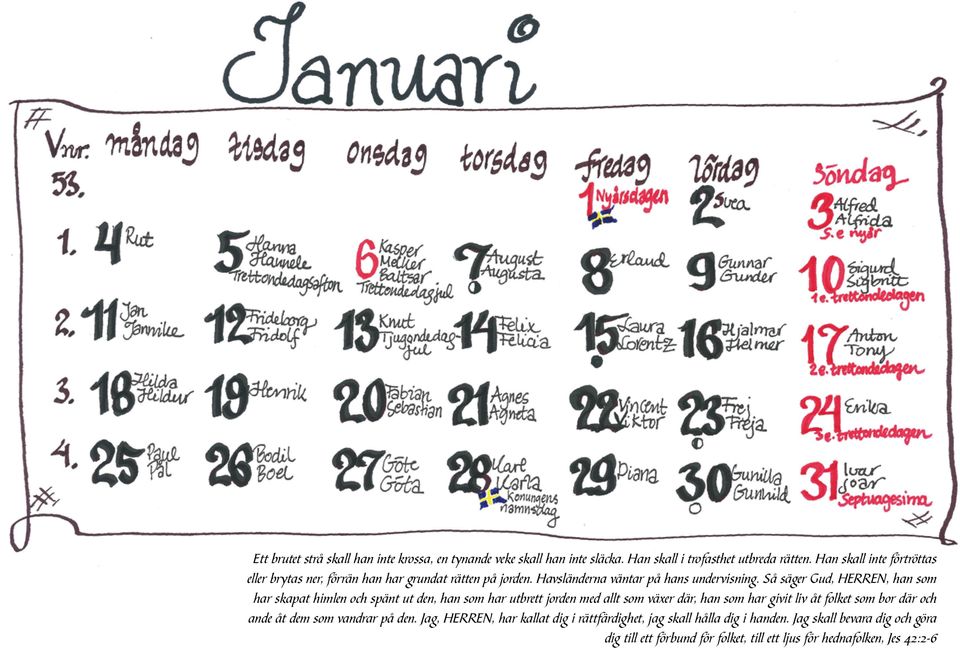 Januari
Vnr. måndag tisdag onsdag torsdag fredag lördag söndag
53. 1 Nyårsdagen 2 Svea 3 Alfred Alfrida S. e nyår
1. 4 Rut 5 Hanna Hannele Trettondedagsafton 6 Kasper Melker Baltsar Trettondedagjul 7 August Augusta 8 Erland 9 Gunnar Gunder 10 Sigurd Sigbritt 1 e. trettondedagen
2. 11 Jan Jannike 12 Frideborg Fridolf 13 Knut Tjugondedag jul 14 Felix Felicia 15 Laura Lorentz 16 Hjalmar Helmer 17 Anton Tony 2 e. trettondedagen
3. 18 Hilda Hildur 19 Henrik 20 Fabian Sebastian 21 Agnes Agneta 22 Vincent Viktor 23 Frej Freja 24 Erika 3 e. trettondedagen
4. 25 Paul Pål 26 Bodil Boel 27 Göte Göta 28 Karl Karla Konungens namnsdag 29 Diana 30 Gunilla Gunhild 31 Ivar Joar Septuagesima
Ett brutet strå skall han inte krossa, en tynande veke skall han inte släcka. Han skall i trofasthet utbreda rätten. Han skall inte förtröttas
eller brytas ner, förrän han har grundat rätten på jorden. Havsländerna väntar på hans undervisning. Så säger Gud, HERREN, han som
har skapat himlen och spänt ut den, han som har utbrett jorden med allt som växer där, han som har givit liv åt folket som bor där och
ande åt dem som vandrar på den. Jag, HERREN, har kallat dig i rättfärdighet, jag skall hålla dig i handen. Jag skall bevara dig och göra
dig till ett förbund för folket, till ett ljus för hednafolken, Jes 42:2-6